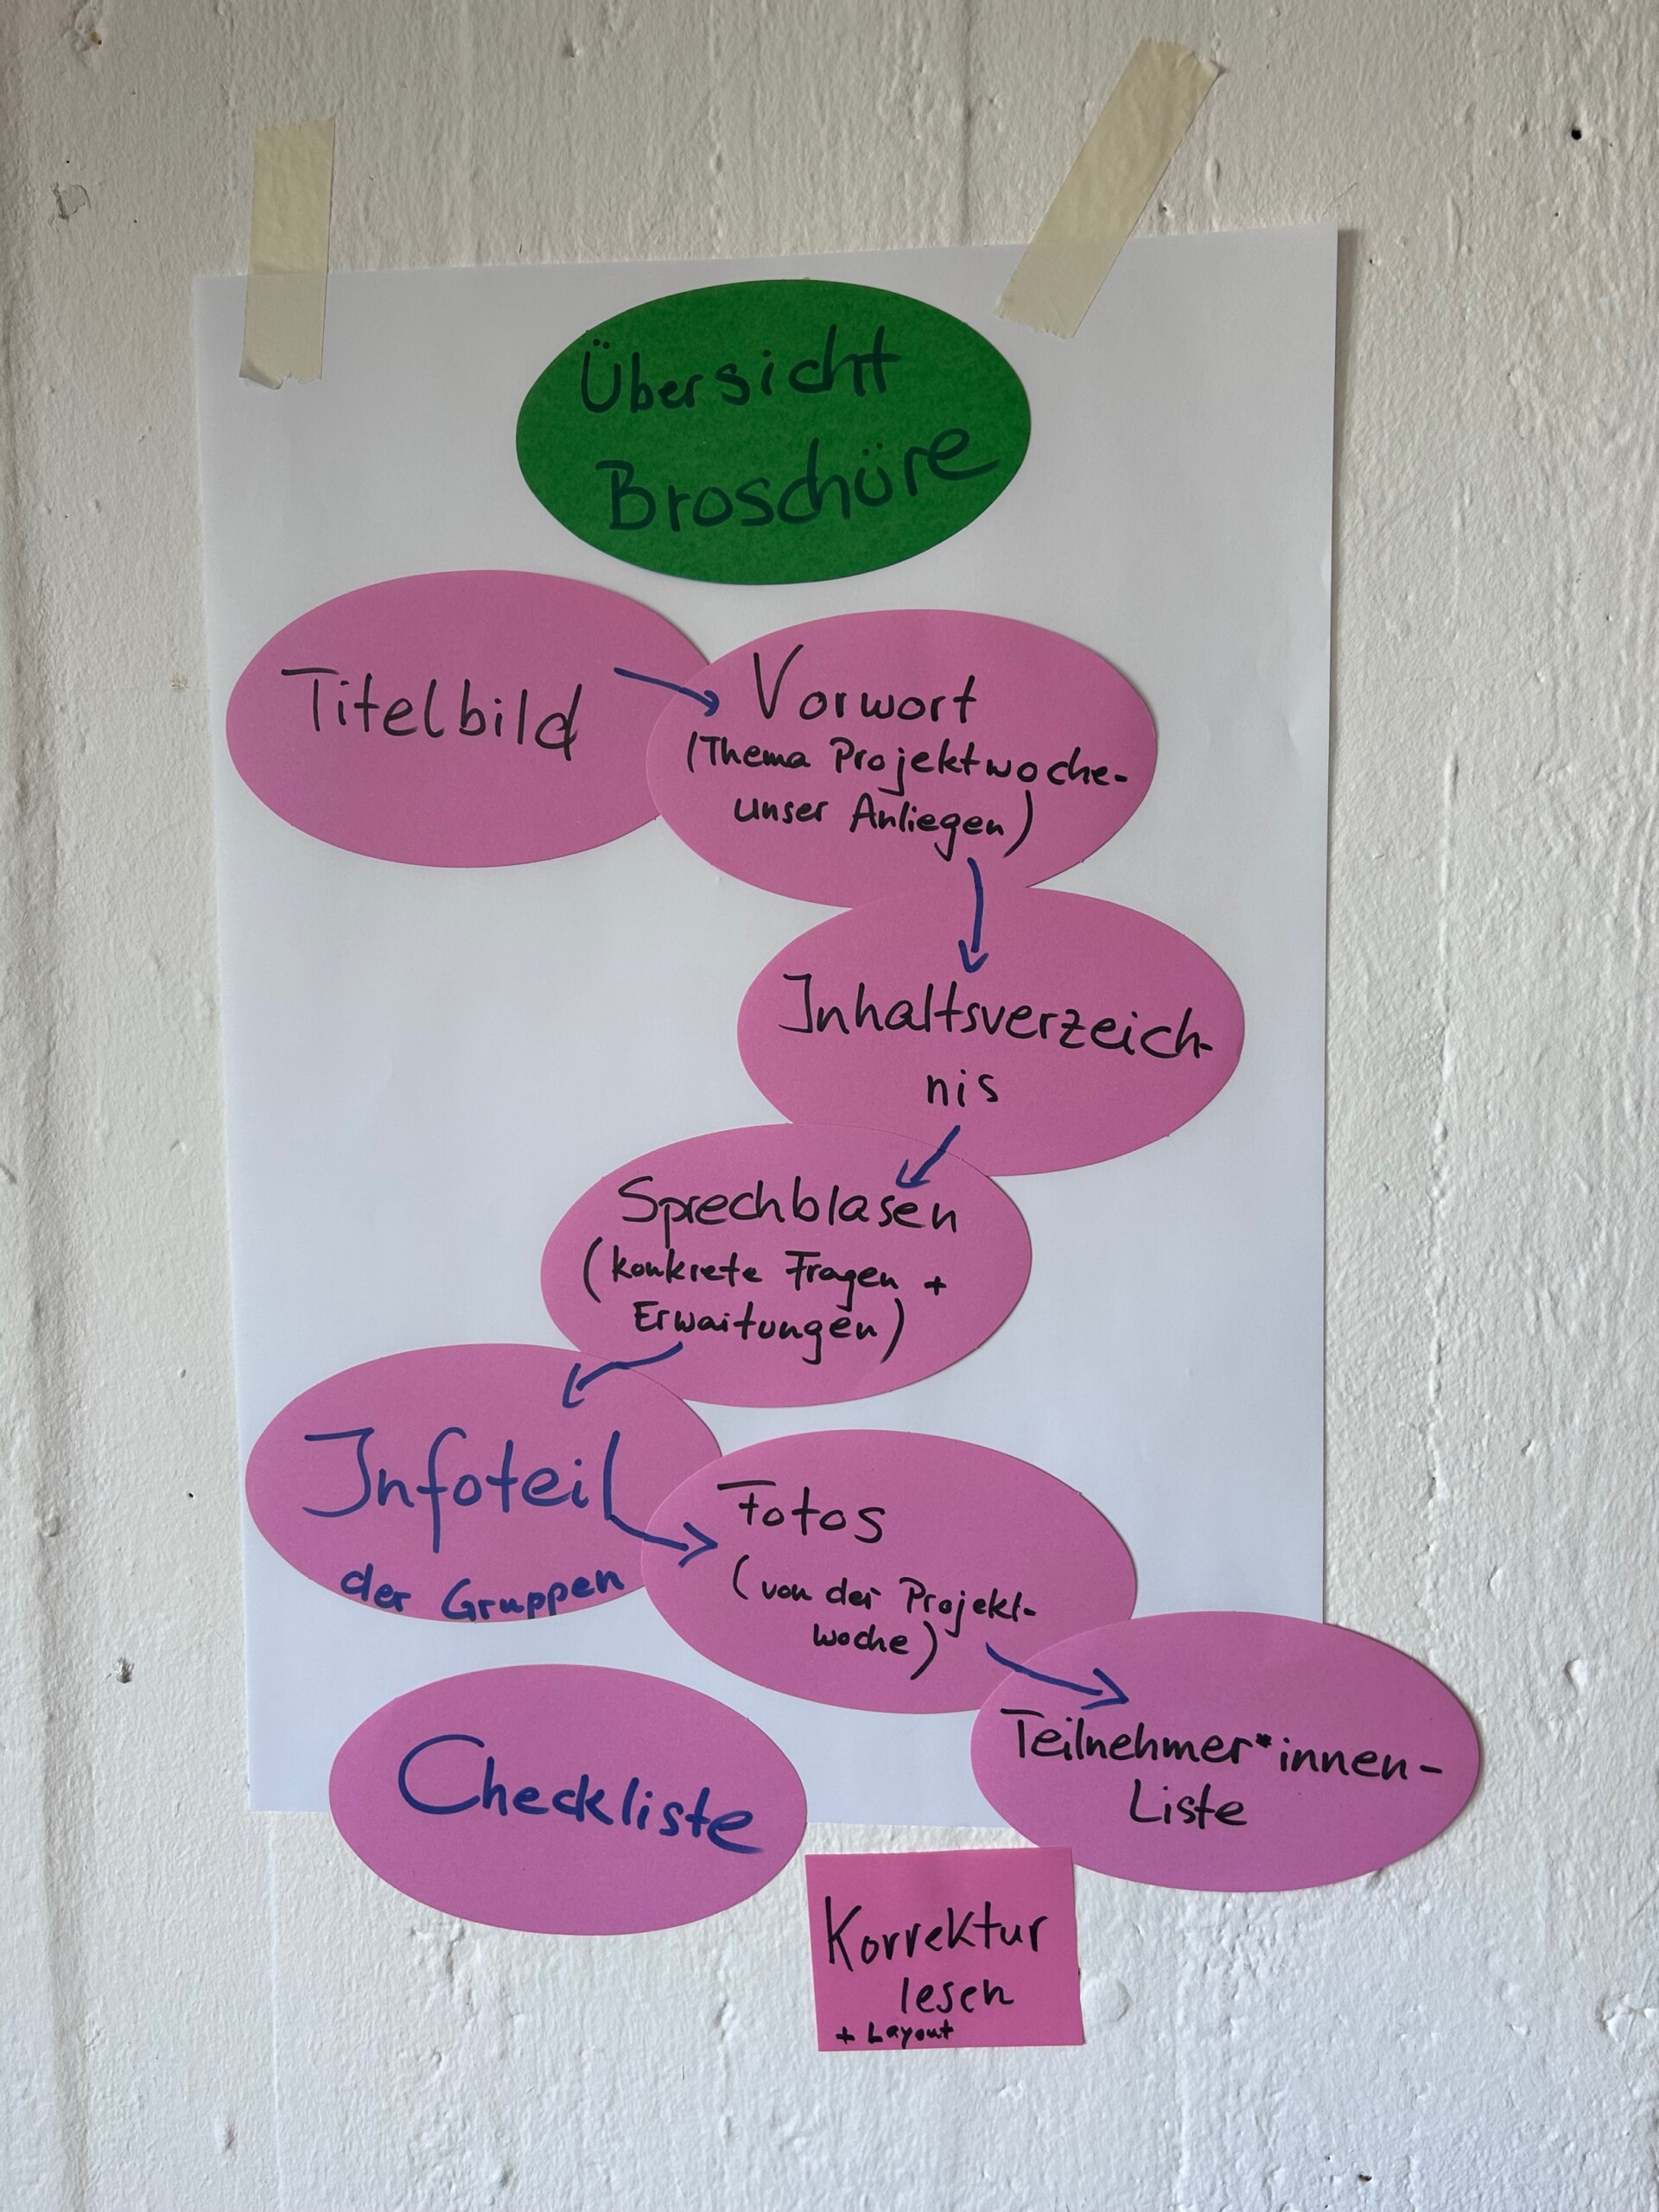 Übersicht
Broschüre
Titelbild
Vorwort
(Thema Projektwoche-
unser Anliegen)
Inhaltsverzeich-
nis
Sprechblasen
(konkrete Fragen +
Erwartungen)
Infoteil
der Gruppen
Fotos
(von der Projekt-
woche)
Teilnehmer*innen-
Liste
Checkliste
Korrektur
lesen
+ Layout